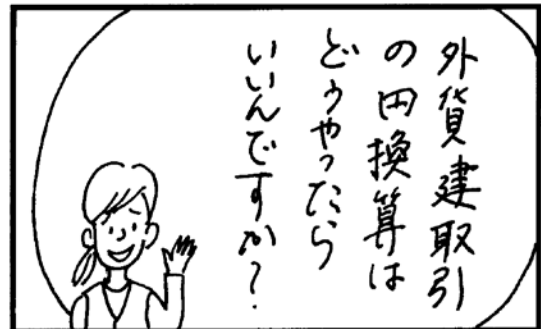 外貨建取引
の円換算は
どうやったら
いいんですか?